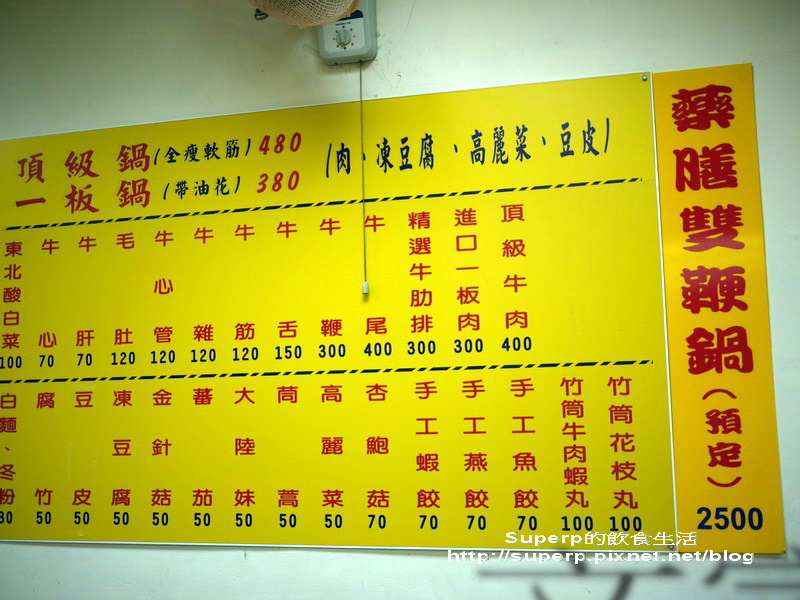 頂級鍋(全瘦軟筋)480
一板鍋(帶油花)380
(肉、凍豆腐、高麗菜、豆皮)
東北酸白菜 100
牛心 70
牛肝 70
毛肚 120
牛心管 120
牛雜 120
牛筋 120
牛舌 150
牛鞭 300
牛尾 400
精選牛肋排 300
進口一板肉 300
頂級牛肉 400
白麵、冬粉 30
腐竹 50
豆皮 50
凍豆腐 50
金針菇 50
蕃茄 50
大陸妹 50
茼蒿 50
高麗菜 50
杏鮑菇 70
手工蝦餃 70
手工燕餃 70
手工魚餃 70
竹筒牛肉蝦丸 100
竹筒花枝丸 100
藥膳雙鞭鍋(預定)
2500
Superp的飲食生活
http://superp.pixnet.net/blog